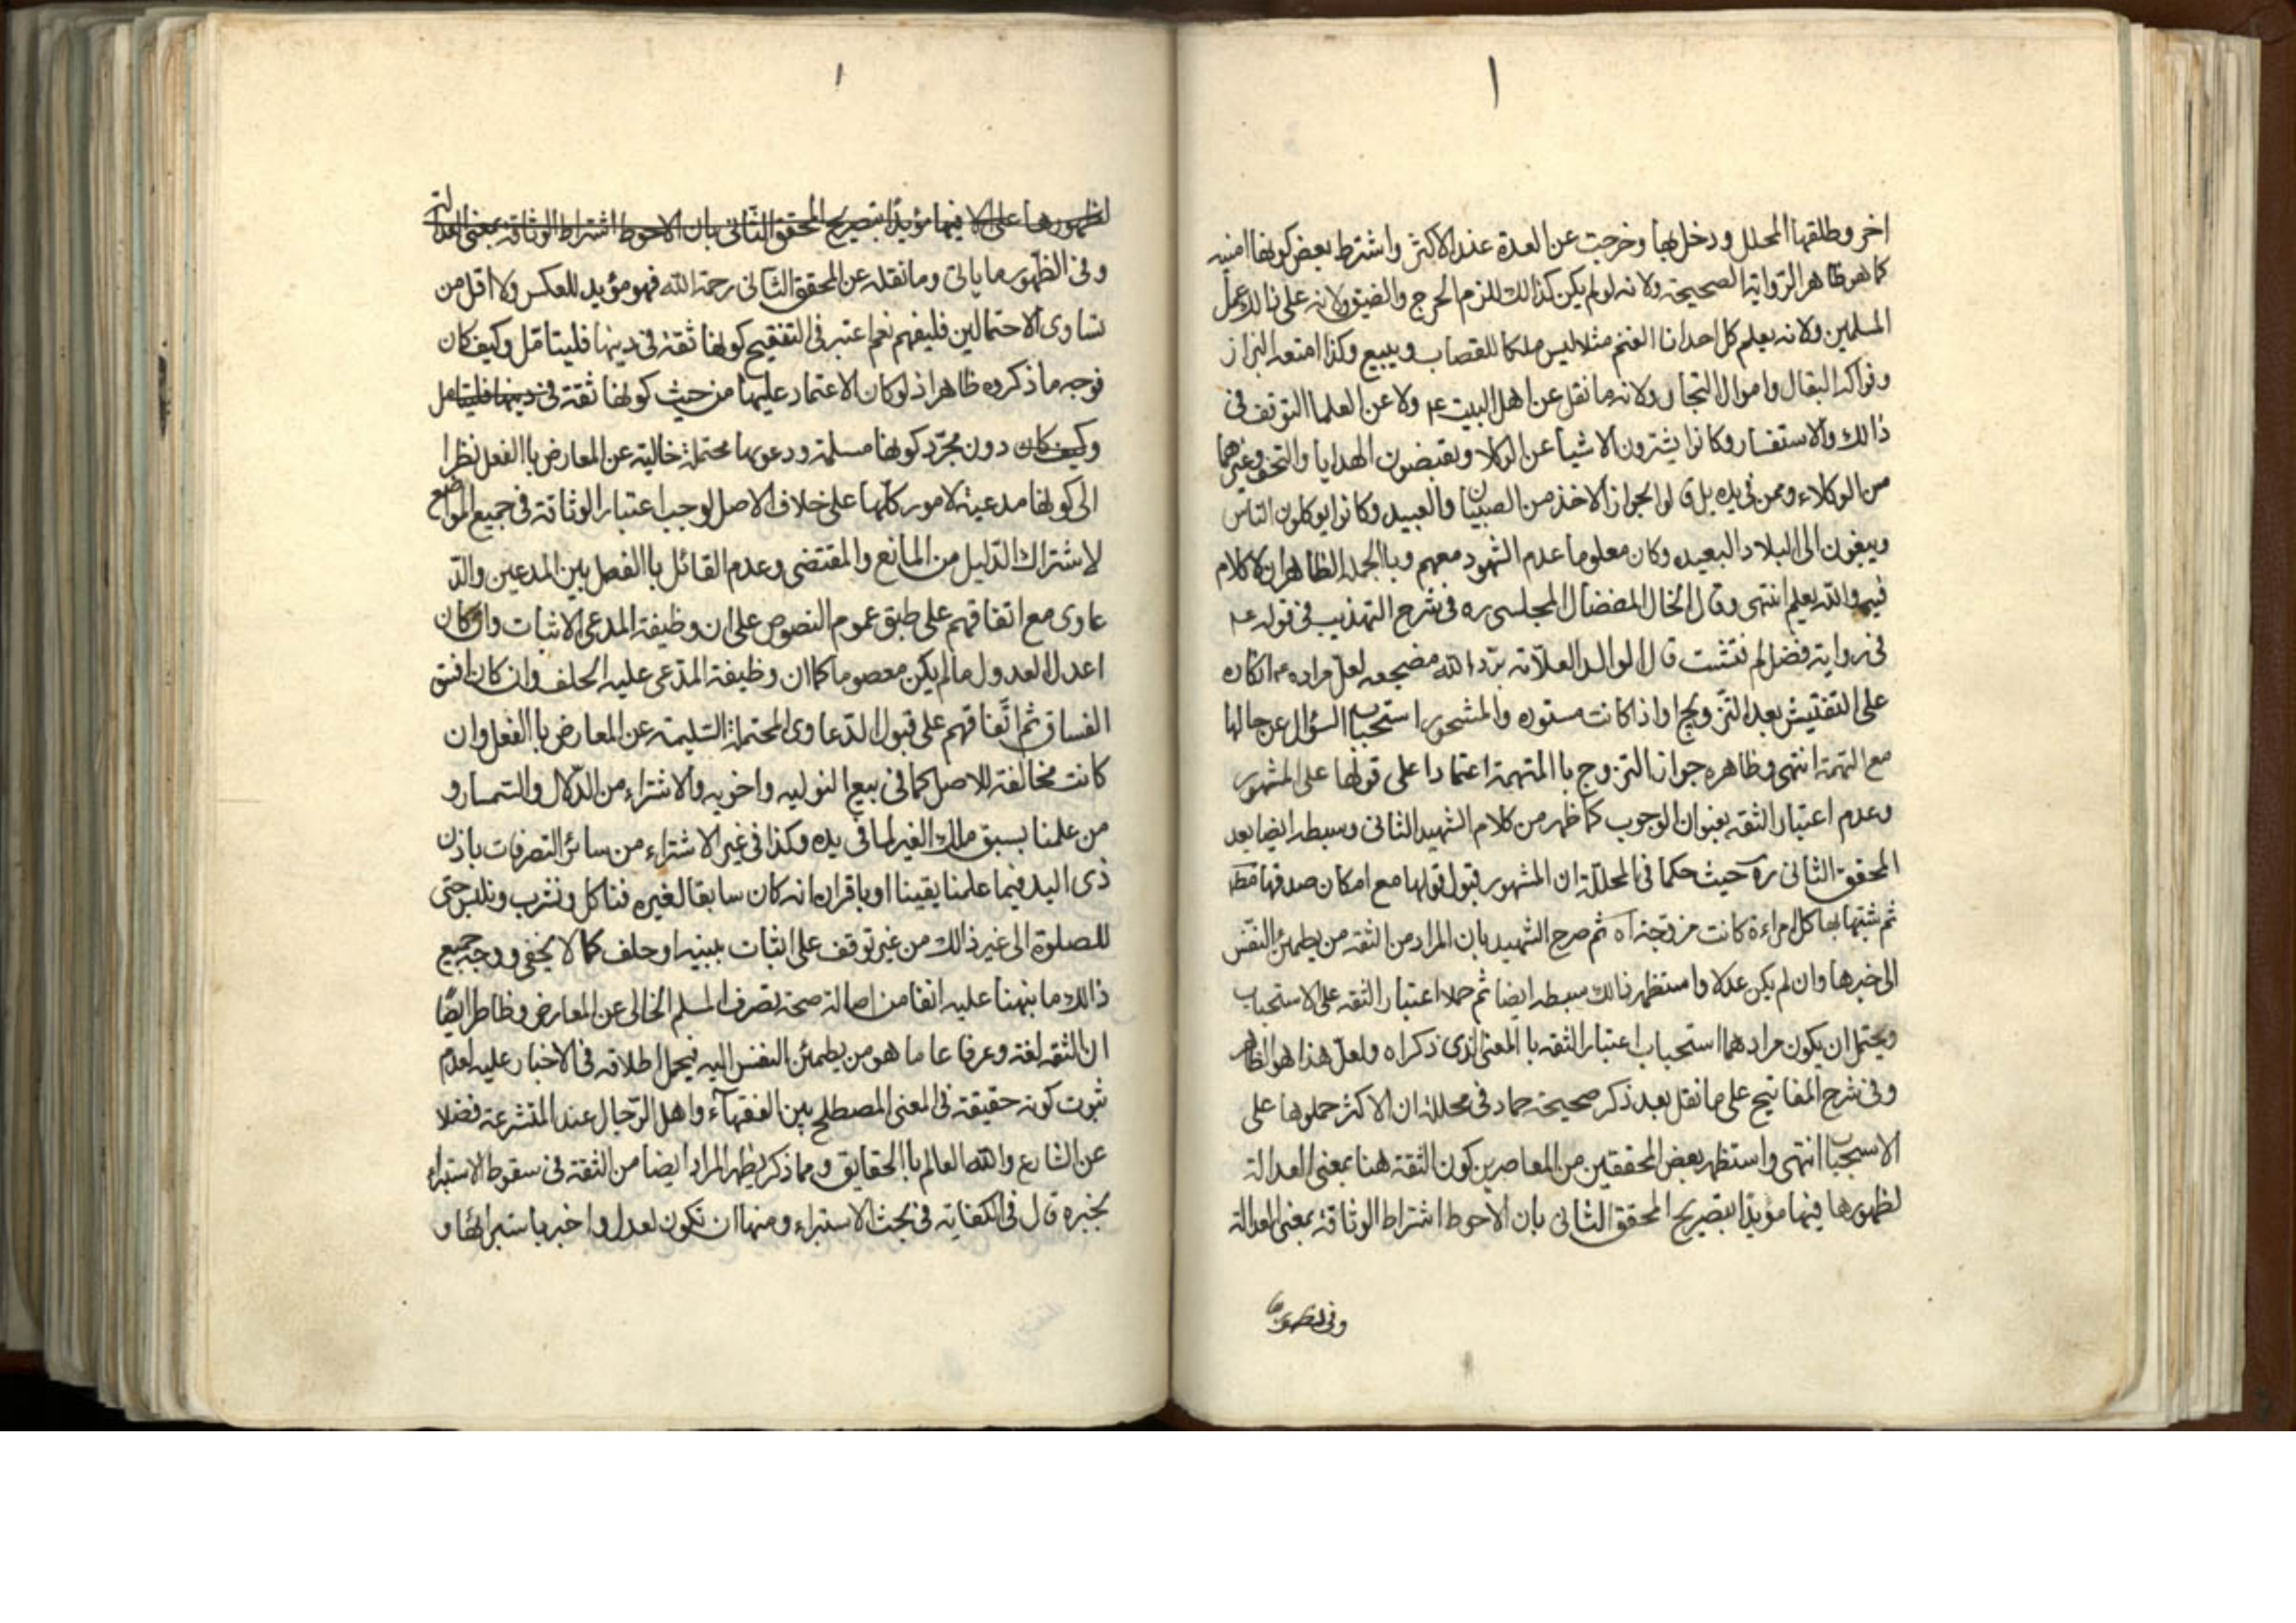 ا
اخر وطلقها المحلل ودخل بها وخرجت عن العدة عند الاكثر واشترط بعض كونها امنيه
كما هو ظاهر الرواية الصحيحة ولانه لو لم يكن كذالك للزم الحرج والضيق ولانه على ذالك عمل
المسلمين ولانه يعلم كل احد انا الغنم مثلا ليس ملكا للقصاب ويبيع وكذا امتعه البزاز
وفواكه البقال واموال التجار ولانه ما نقل عن اهل البيت ع ولا عن العلما التوقف فى
ذالك والاستفسار وكانوا يشترون الاشيا عن الوكلا ويقبضون الهدايا والتحف وغيرهما
من الوكلاء وممن فى يده بل ق لوا بجواز الاخذ من الصبيان والعبيد وكانوا يوكلون الناس
ويبغون الى البلاد البعيده وكان معلوما عدم الشهود معهم وباالجمله الظاهر ان لا كلام
فيه والله يعلم انتهى وقال الخال المفضال المجلسى ره فى شرح التهذيب فى قوله ع
فى رواية فضل لم فتشت ق ل الوالد العلامة برد الله مضجعه لعل مراده ع انكاره
على التفتيش بعد التزويج او اذا كانت مستوره والمشهور استحباب السؤال عن حالها
مع التهمة انتهى وظاهره جواز التزوج باالمتهمة اعتمادا على قولها على المشهور
وعدم اعتبار الثقه بعنوان الوجوب كما ظهر من كلام الشهيد الثانى وسبطه ايضا بعد
المحقق الثانى ره حيث حكما فى المحللة ان المشهور قبول قولها مع امكان صدقها مطـ
ثم شبها بها كل امراءة كانت مزوجة اه ثم صرح الشهيد بان المراد من الثقه من يطمئن النفس
الى خبرها وان لم يكن عدلا واستظهر ذالك سبطه ايضا ثم حملا اعتبار الثقه على الاستحباب
ويحتمل ان يكون مرادهما استحباب اعتبار الثقه باالمعنى الذى ذكراه ولعل هذا هو الظاهر
وفى شرح المفاتيح على ما نقل بعد ذكر صحيحة حماد فى محللة ان الاكثر حملوها على
الاستحباب انتهى واستظهر بعض المحققين من المعاصرين كون الثقة هنا بمعنى العدالة
لظهورها فيها مؤيدا بتصريح المحقق الثانى بان الاحوط اشتراط الوثاقة بمعنى العدالة
وفى لظهور ما
ا
لظهورها على الا فيها مؤيدا بتصريح المحقق الثانى بان الاحوط اشتراط الوثاقة بمعنى العدالة
وفى الظهور ما ياتى وما نقله عن المحقق الثانى رحمة الله فهو مؤيد للعكس ولا اقل من
تساوى الاحتمالين فليفهم نعم اعتبر فى التنقيح كونها ثقة فى دينها فليتامل وكيف كان
فوجه ما ذكروه ظاهر اذ لو كان الاعتماد عليها من حيث كونها ثقة فى دينها فليتامل
وكيف كان دون مجرد كونها مسلمة ودعويها محتملة خالية عن المعارض باالفعل نظرا
الى كونها مدعية لامور كلها على خلاف الاصل لوجب اعتبار الوثاقة فى جميع المواضع
لاشتراك الدليل من المانع والمقتضى وعدم القائل باالفصل بين المدعين والد
عاوى مع اتفاقهم على طبق عموم النصوص على ان وظيفة المدعى الاثبات وان كان
اعدل العدول ما لم يكن معصوما كما ان وظيفة المدعى عليه الحلف وان كان افسق
الفساق ثم اتفاقهم على قبول الدعاوى المحتملة السليمة عن المعارض باالفعل وان
كانت مخالفة للاصل كما فى بيع النوليه واخويه والاشتراء من الدلال والسمسار و
من علمنا بسبق ملك الغير لما فى يده وكذا فى غير الاشتراء من سائر التصرفات باذن
ذى اليد فيما علمنا يقينا او باقراره انه كان سابقا لغيره فناكل ونشرب ونلبس حتى
للصلوة الى غير ذالك من غير توقف على اثبات ببينه او حلف كما لا يخفى ووجه جميع
ذالك ما نبهنا عليه انفا من اصالة صحة تصرف المسلم الخالى عن المعارض وظاطر ايضا
ان الثقه لغة وعرفا عاما هو من يطمئن النفس اليه فيحمل اطلاقه فى الاخبار عليه لعدم
ثبوت كونه حقيقة فى المعنى المصطلح بين الفقهاء واهل الرجال عند المتشرعة فضلا
عن الشارع والله العالم باالحقايق ومما ذكر يظهر المراد ايضا من الثقة فى سقوط الاستبراء
بخبره ق ل فى الكفاية فى بحث الاستبراء ومنها ان تكون لعدل واخبر باستبرائها و